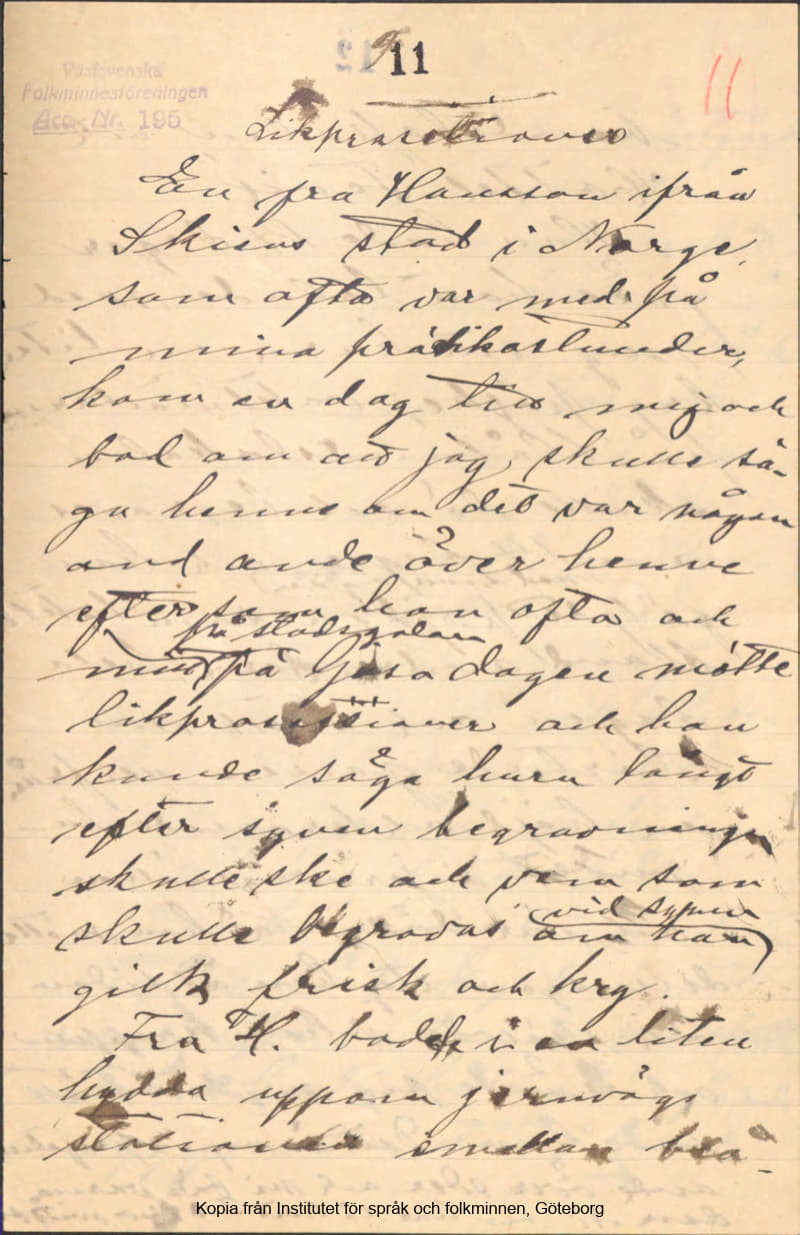 11
11
Västsvenska
Folkminnesföreningen
Acc. Nr. 195
Likprosetioner
En fra Hansson ifrån
Skiens stad i Norge,
som ofta var med på
mina prädikostunder,
kom en dag till mig och
bad om att jag skulle sä-
ga henne om det var någon
ond ande över henne
eftersom hon ofta och
på stadsgatan
mitt på ljusa dagen mötte
likprosessioner och hon
kunde säga huru långt
efter synen begravningen
skulle ske och vem som
vid synen
skulle begravas om han
gick frisk och kry.
Fra H. bodde i en liten
hydda uppom jernvägs
stationen emellan bra-
Kopia från Institutet för språk och folkminnen, Göteborg